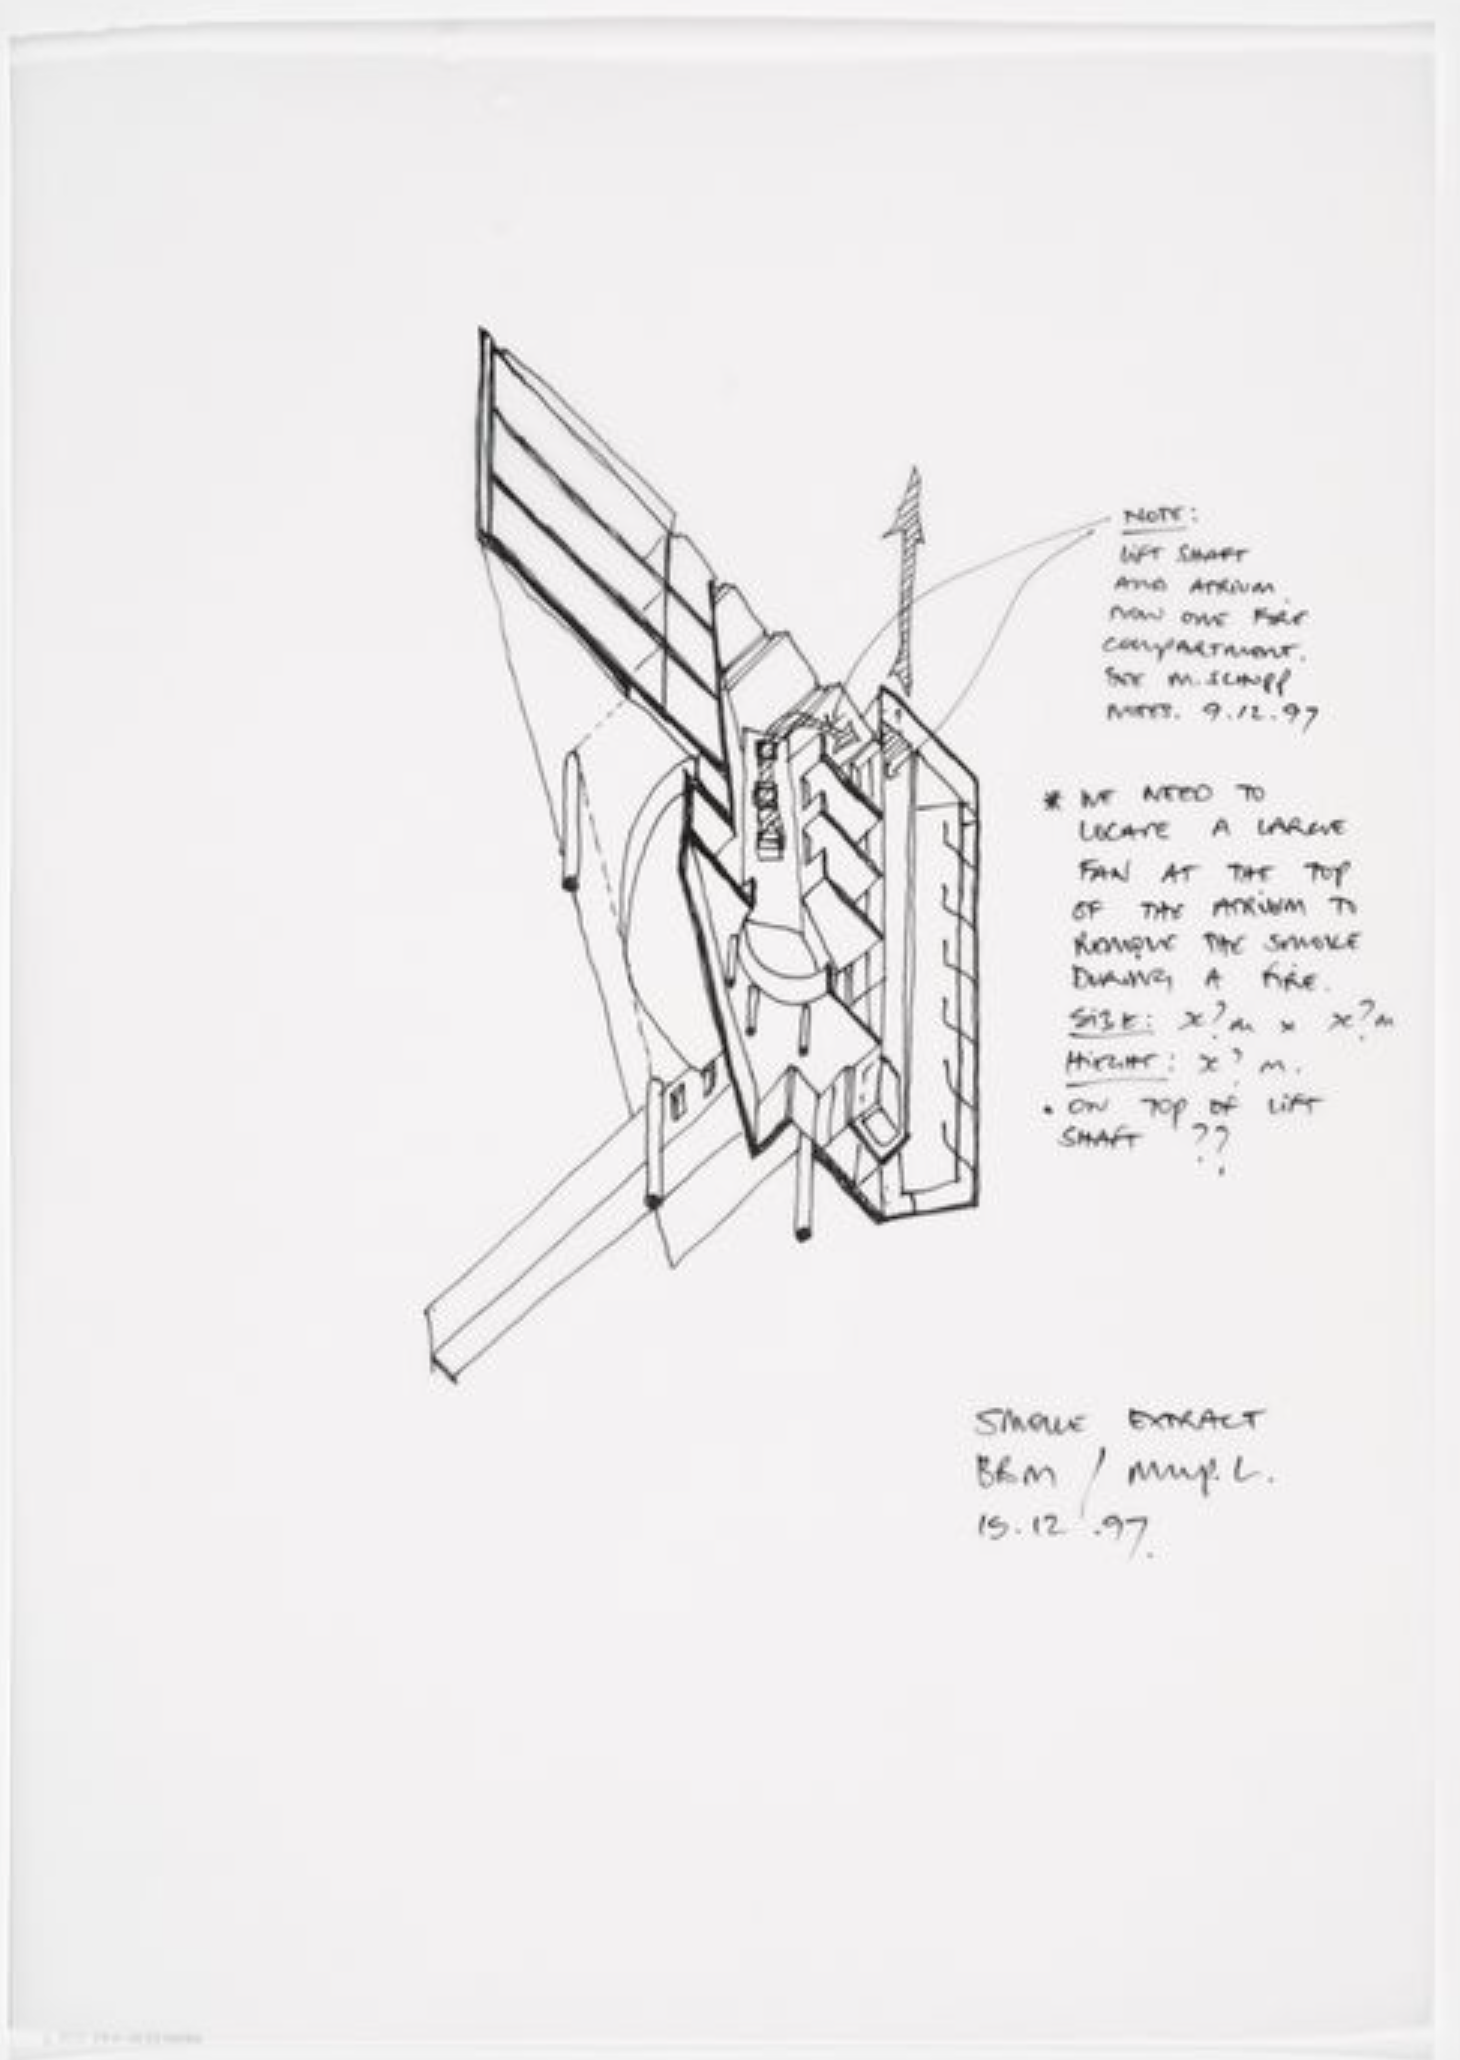 NOTE:
LIFT SHAFT
AND ATRIUM
NOW ONE FIRE
COMPARTMENT.
SEE M. SCHUPP
NOTES. 9.12.97
* WE NEED TO
LOCATE A LARGE
FAN AT THE TOP
OF THE ATRIUM TO
REMOVE THE SMOKE
DURING A FIRE.
SIZE: x?m x x?m
HEIGHT: x? m.
• ON TOP OF LIFT
SHAFT ??
SMOKE EXTRACT
BBM /
15.12.97.